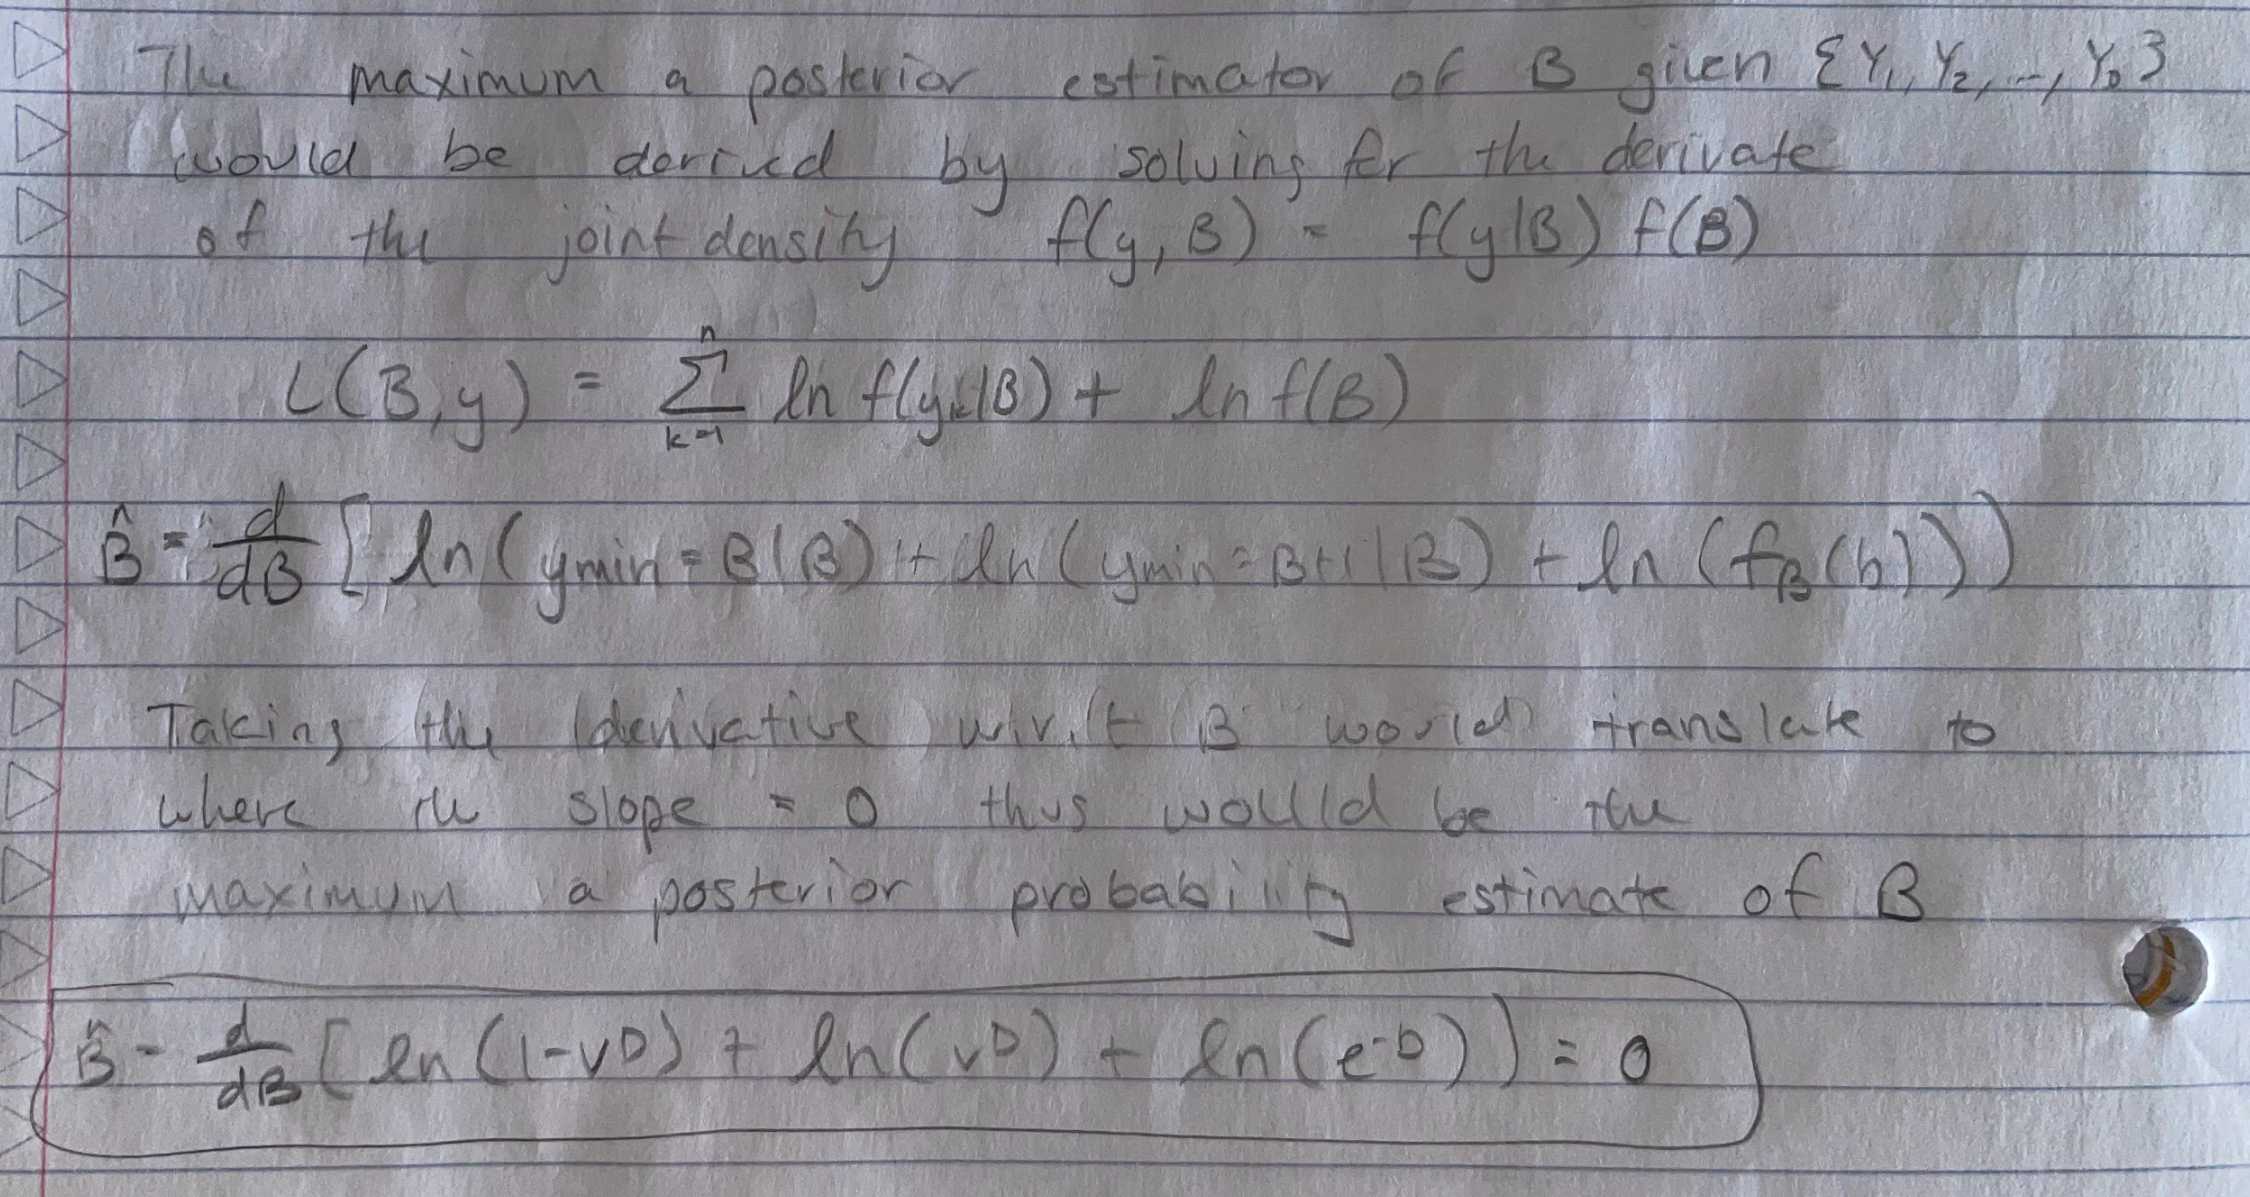 The maximum a posterior estimator of B given {Y₁, Y₂, ..., Y_D}
would be derived by solving for the derivate
of the joint density f(y, B) = f(y|B) f(B)
L(B, y) = Σ_{k=1}^{n} ln f(y_k|B) + ln f(B)
B̂ = d/dB [ ln(ymin = B|B) + ln(ymin = B+1|B) + ln(f_B(b)))
Taking the derivative w.r.t B would translate to
where the slope = 0 thus would be the
maximum a posterior probability estimate of B
B̂ = d/dB [ln(1-v^D) + ln(v^D) + ln(e^{-b})) = 0